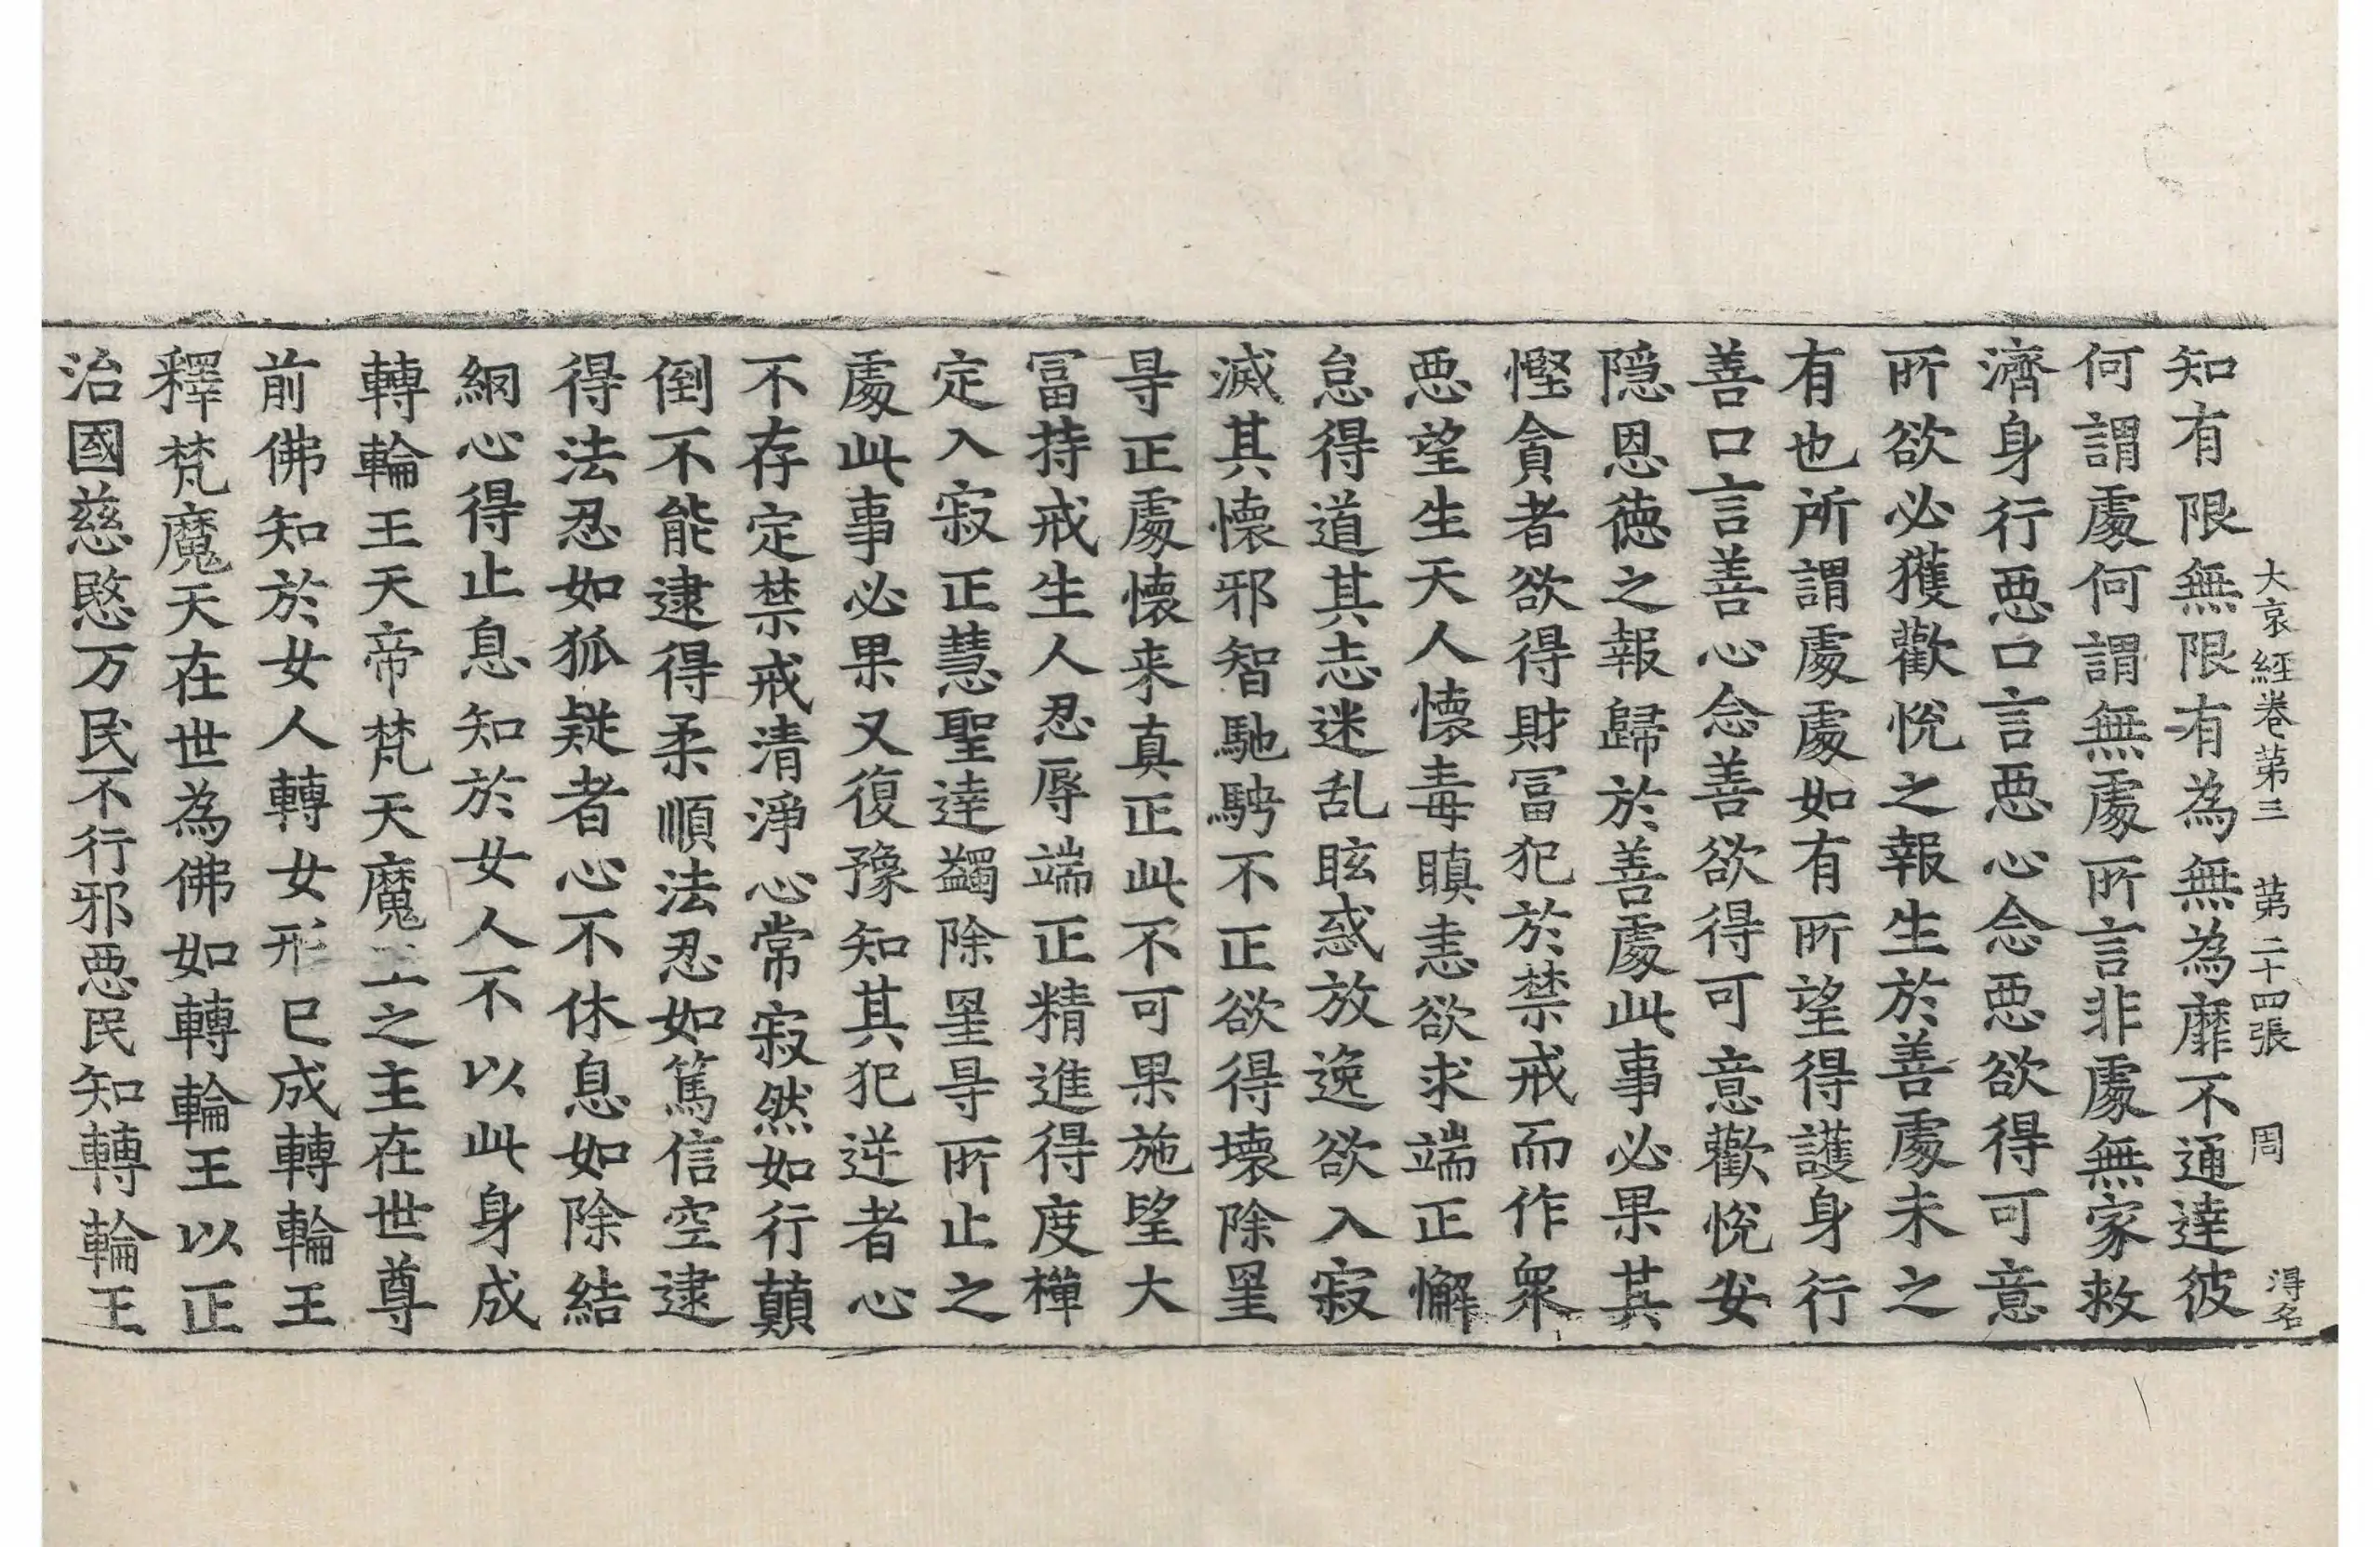 大哀經卷第三 第二十四張 周 淂名
知有限無限有為無為靡不通達彼
何謂處何謂無處所言非處無家救
濟身行悪口言悪心念悪欲得可意
所欲必獲歡悅之報生於善處未之
有也所謂處處如有所望得護身行
善口言善心念善欲得可意歡悅安
隱恩徳之報歸於善處此事必果其
慳貪者欲得財冨犯於禁戒而作衆
悪望生天人懷毒瞋恚欲求端正懈
怠得道其志迷乱眩惑放逸欲入寂
滅其懐邪智馳騁不正欲得壊除罣
㝵正處懐来真正此不可果施望大
冨持戒生人忍辱端正精進得度禪
定入寂正慧聖達蠲除罣㝵所止之
處此事必果又復豫知其犯逆者心
不存定禁戒清淨心常寂然如行顛
倒不能逮得柔順法忍如篤信空逮
得法忍如狐疑者心不休息如除結
網心得止息知於女人不以此身成
轉輪王天帝梵天魔王之主在世尊
前佛知於女人轉女形已成轉輪王
釋梵魔天在世為佛如轉輪王以正
治國慈愍万民不行邪悪民知轉輪王